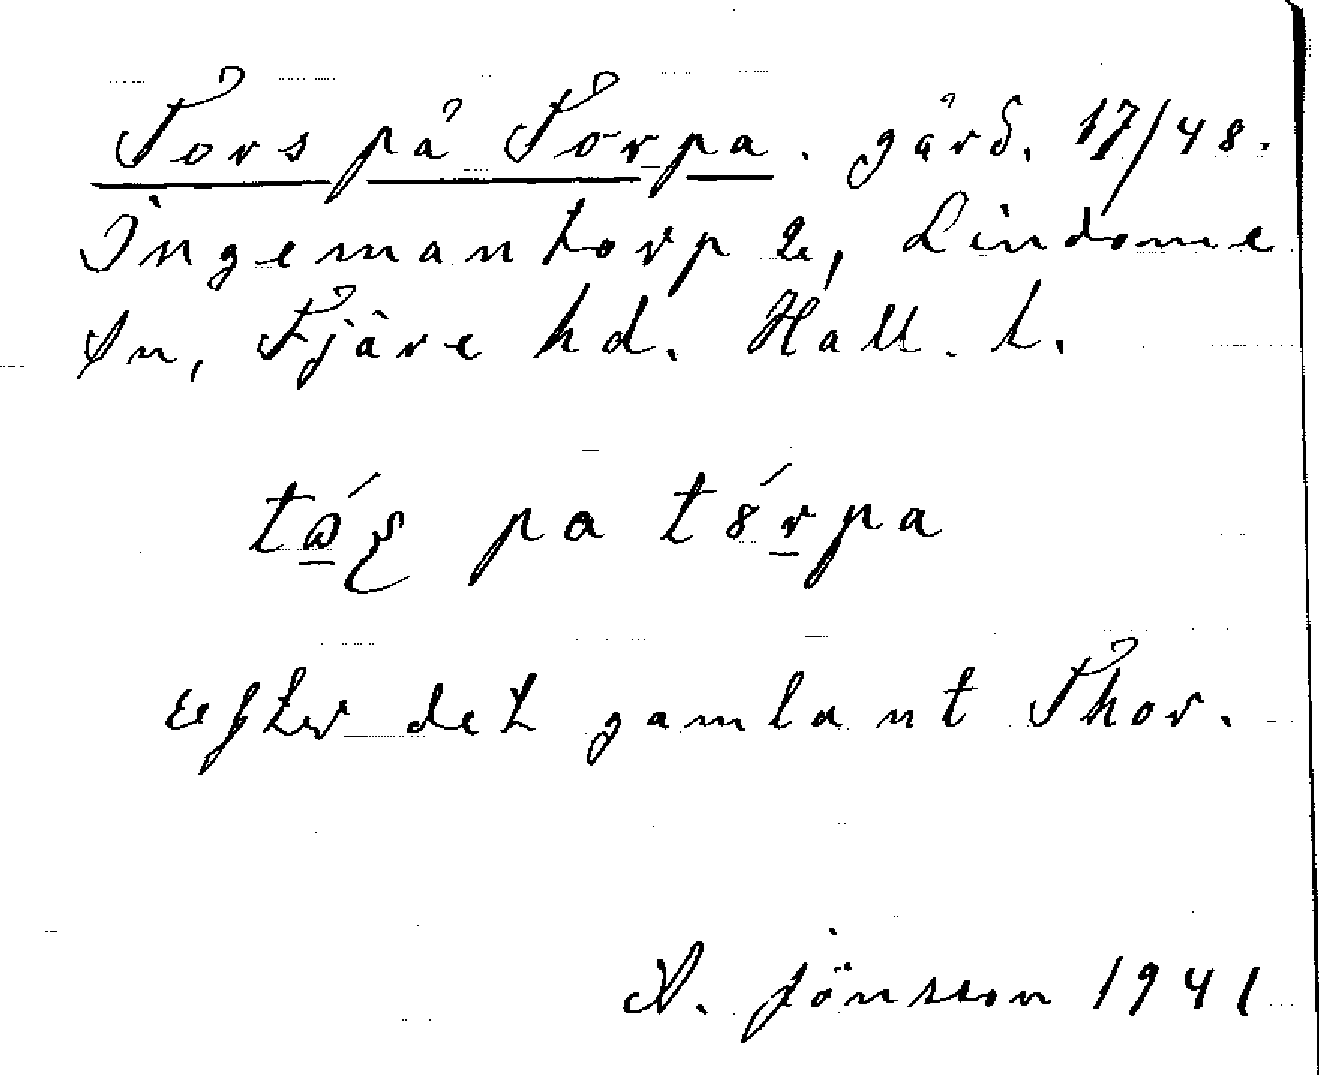 Tors på Torpa. gård. 17/48.
Ingemantorp 2, Lindome
sn, Fjäre hd. Hall. l.
pa
efter det gamla nt Thor.
A. Jönsson 1941